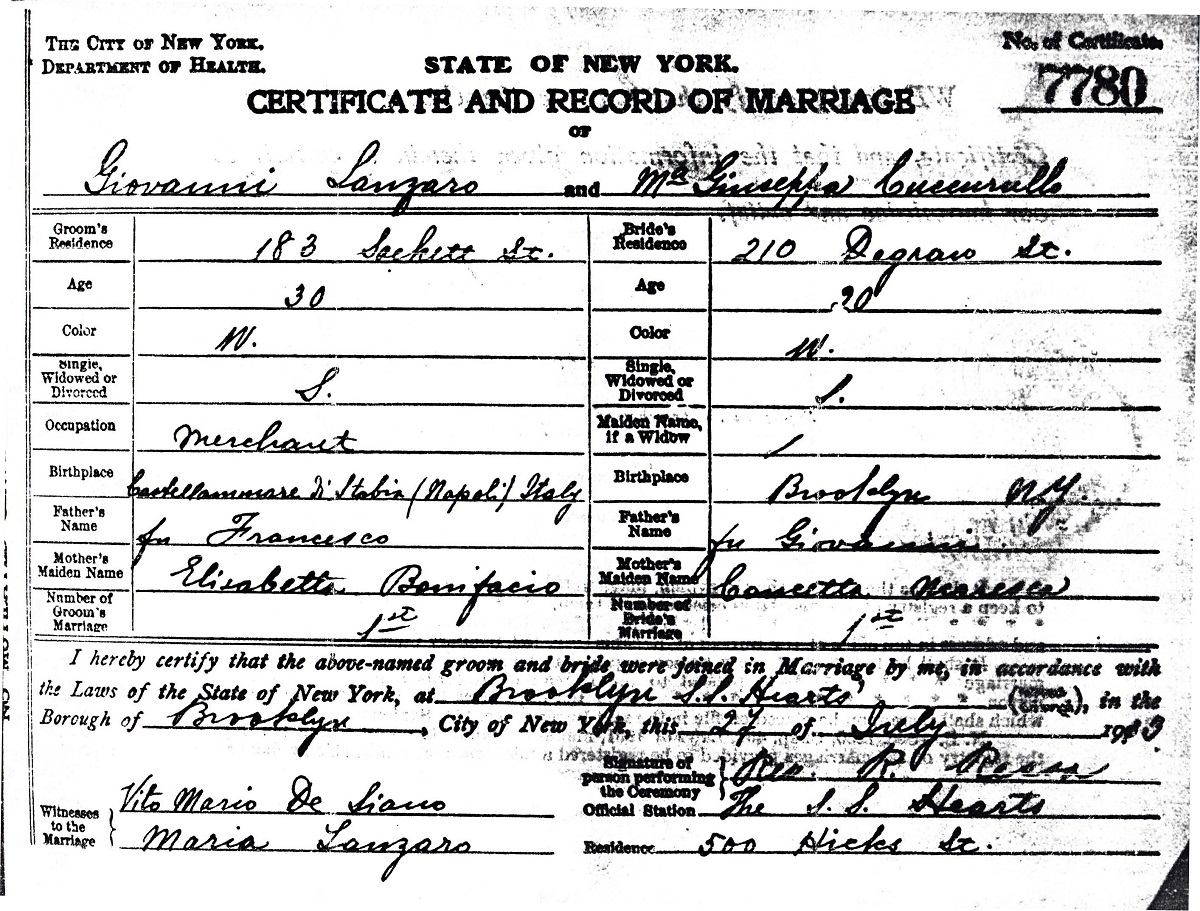 THE CITY OF NEW YORK.
DEPARTMENT OF HEALTH.
STATE OF NEW YORK.
No. of Certificate.
7780
CERTIFICATE AND RECORD OF MARRIAGE
OF
Giovanni Lanzaro and Ma Giuseppa Cuccurullo
Groom's Residence 183 Sackett St. Bride's Residence 210 Degraw St.
Age 30 Age 20
Color W. Color W.
Single, Widowed or Divorced S. Single, Widowed or Divorced S.
Occupation Merchant Maiden Name, if a Widow /
Birthplace Castellammare di Stabia (Napoli) Italy Birthplace Brooklyn N.Y.
Father's Name fu Francesco Father's Name fu Giovanni
Mother's Maiden Name Elisabetta Bonifacio Mother's Maiden Name Concetta
Number of Groom's Marriage 1st Number of Bride's Marriage 1st
I hereby certify that the above-named groom and bride were joined in Marriage by me, in accordance with
the Laws of the State of New York, at Brooklyn S.S. Hearts (Church), in the
Borough of Brooklyn, City of New York, this 27 of July 1913
Signature of person performing the Ceremony Rev. R.
Witnesses to the Marriage Vito Mario De Siano Official Station The S.S. Hearts
Maria Lanzaro Residence 500 Hicks St.